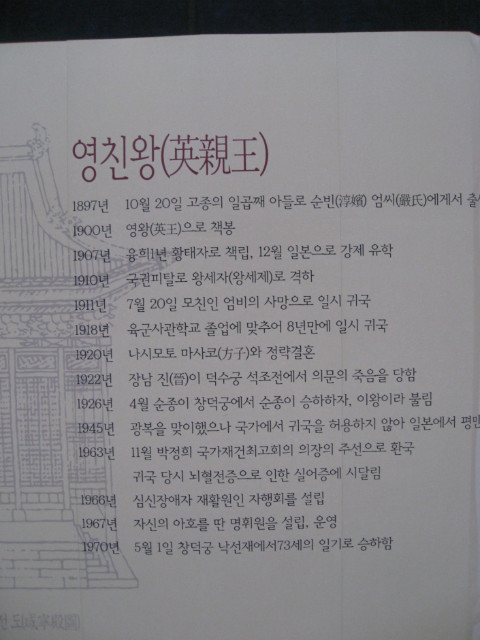 영친왕(英親王)
1897년 10월 20일 고종의 일곱째 아들로 순빈(淳嬪) 엄씨(嚴氏)에게서 출
1900년 영왕(英王)으로 책봉
1907년 융희1년 황태자로 책립, 12월 일본으로 강제 유학
1910년 국권피탈로 왕세자(왕세제)로 격하
1911년 7월 20일 모친인 엄비의 사망으로 일시 귀국
1918년 육군사관학교 졸업에 맞추어 8년만에 일시 귀국
1920년 나시모토 마사코(方子)와 정략결혼
1922년 장남 진(晉)이 덕수궁 석조전에서 의문의 죽음을 당함
1926년 4월 순종이 창덕궁에서 순종이 승하하자, 이왕이라 불림
1945년 광복을 맞이했으나 국가에서 귀국을 허용하지 않아 일본에서 평민
1963년 11월 박정희 국가재건최고회의 의장의 주선으로 환국
귀국 당시 뇌혈전증으로 인한 실어증에 시달림
1966년 심신장애자 재활원인 자행회를 설립
1967년 자신의 아호를 딴 명휘원을 설립, 운영
1970년 5월 1일 창덕궁 낙선재에서73세의 일기로 승하함